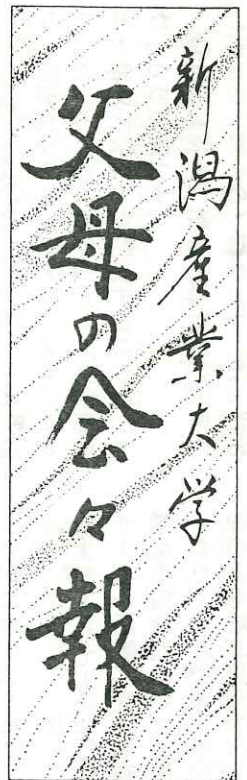 新潟産業大学
父母の会々報